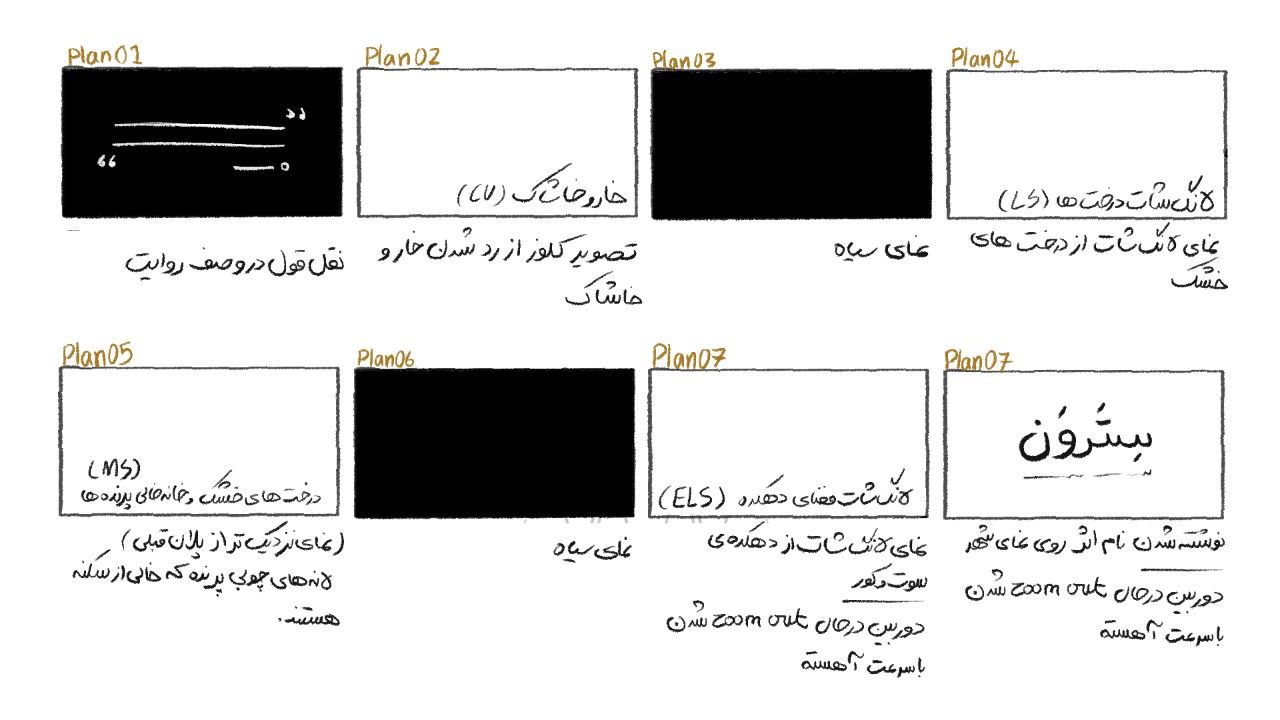 Plan01
”
“
نقل قول در وصف روایت
Plan02
خار و خاشاک (CU)
تصویر کلوز از رد شدن خار و
خاشاک
Plan03
نمای سیاه
Plan04
لانگ شات درخت ها (LS)
نمای لانگ شات از درخت های
خشک
Plan05
(MS)
درخت های خشک و خانه خالی پرنده ها
(نمای نزدیک تر از پلان قبلی)
لانه های چوبی پرنده که خالی از سکنه
هستند.
Plan06
نمای سیاه
Plan07
لانگ شات فضای دهکده (ELS)
نمای لانگ شات از دهکده ی
سوت و کور
دوربین درحال zoom out شدن
با سرعت آهسته
Plan07
سِتَروَن
نوشته شدن نام اثر روی نمای شهر
دوربین درحال zoom out شدن
با سرعت آهسته